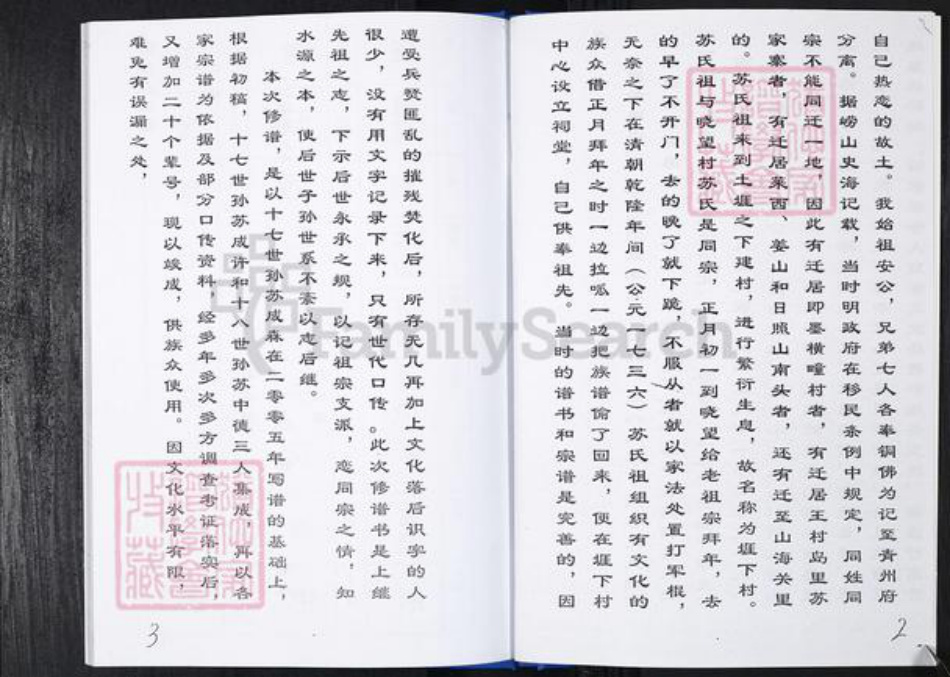 自己热恋的故土。我始祖安公，兄弟七人各奉铜佛为记至青州府
分离。据崂山史海记载，当时明政府在移民条例中规定，同姓同
宗不能同迁一地，因此有迁居即墨横疃村者，有迁居王村岛里苏
家寨者，有迁居莱西、姜山和日照山南头者，还有迁至山海关里
的。苏氏祖来到土堐之下建村，进行繁衍生息，故名称为堐下村。
苏氏祖与晓望村苏氏是同宗，正月初一到晓望给老祖宗拜年，去
的早了不开门，去的晚了就下跪，不服从者就以家法处置打军棍，
无奈之下在清朝乾隆年间（公元一七三六）苏氏祖组织有文化的
族众借正月拜年之时一边拉呱一边把族谱偷了回来，便在堐下村
中心设立祠堂，自己供奉祖先。当时的谱书和宗谱是完善的，因
2
遭受兵燹匪乱的摧残焚化后，所存无几再加上文化落后识字的人
很少，没有用文字记录下来，只有世代口传。此次修谱书是上继
先祖之志，下示后世永承之规，以记祖宗支派，恋同宗之情，知
水源之本，使后世子孙世系不紊以志后继。
本次修谱，是以十七世孙苏成森在二零零五年写谱的基础上，
根据初稿，十七世孙苏成许和十八世孙苏中德三人集成，再以各
家宗谱为依据及部分口传资料 经多年多次多方调查考证落实后，
又增加二十个辈号，现以竣成，供族众使用。因文化水平有限，
难免有误漏之处，
3
FamilySearch